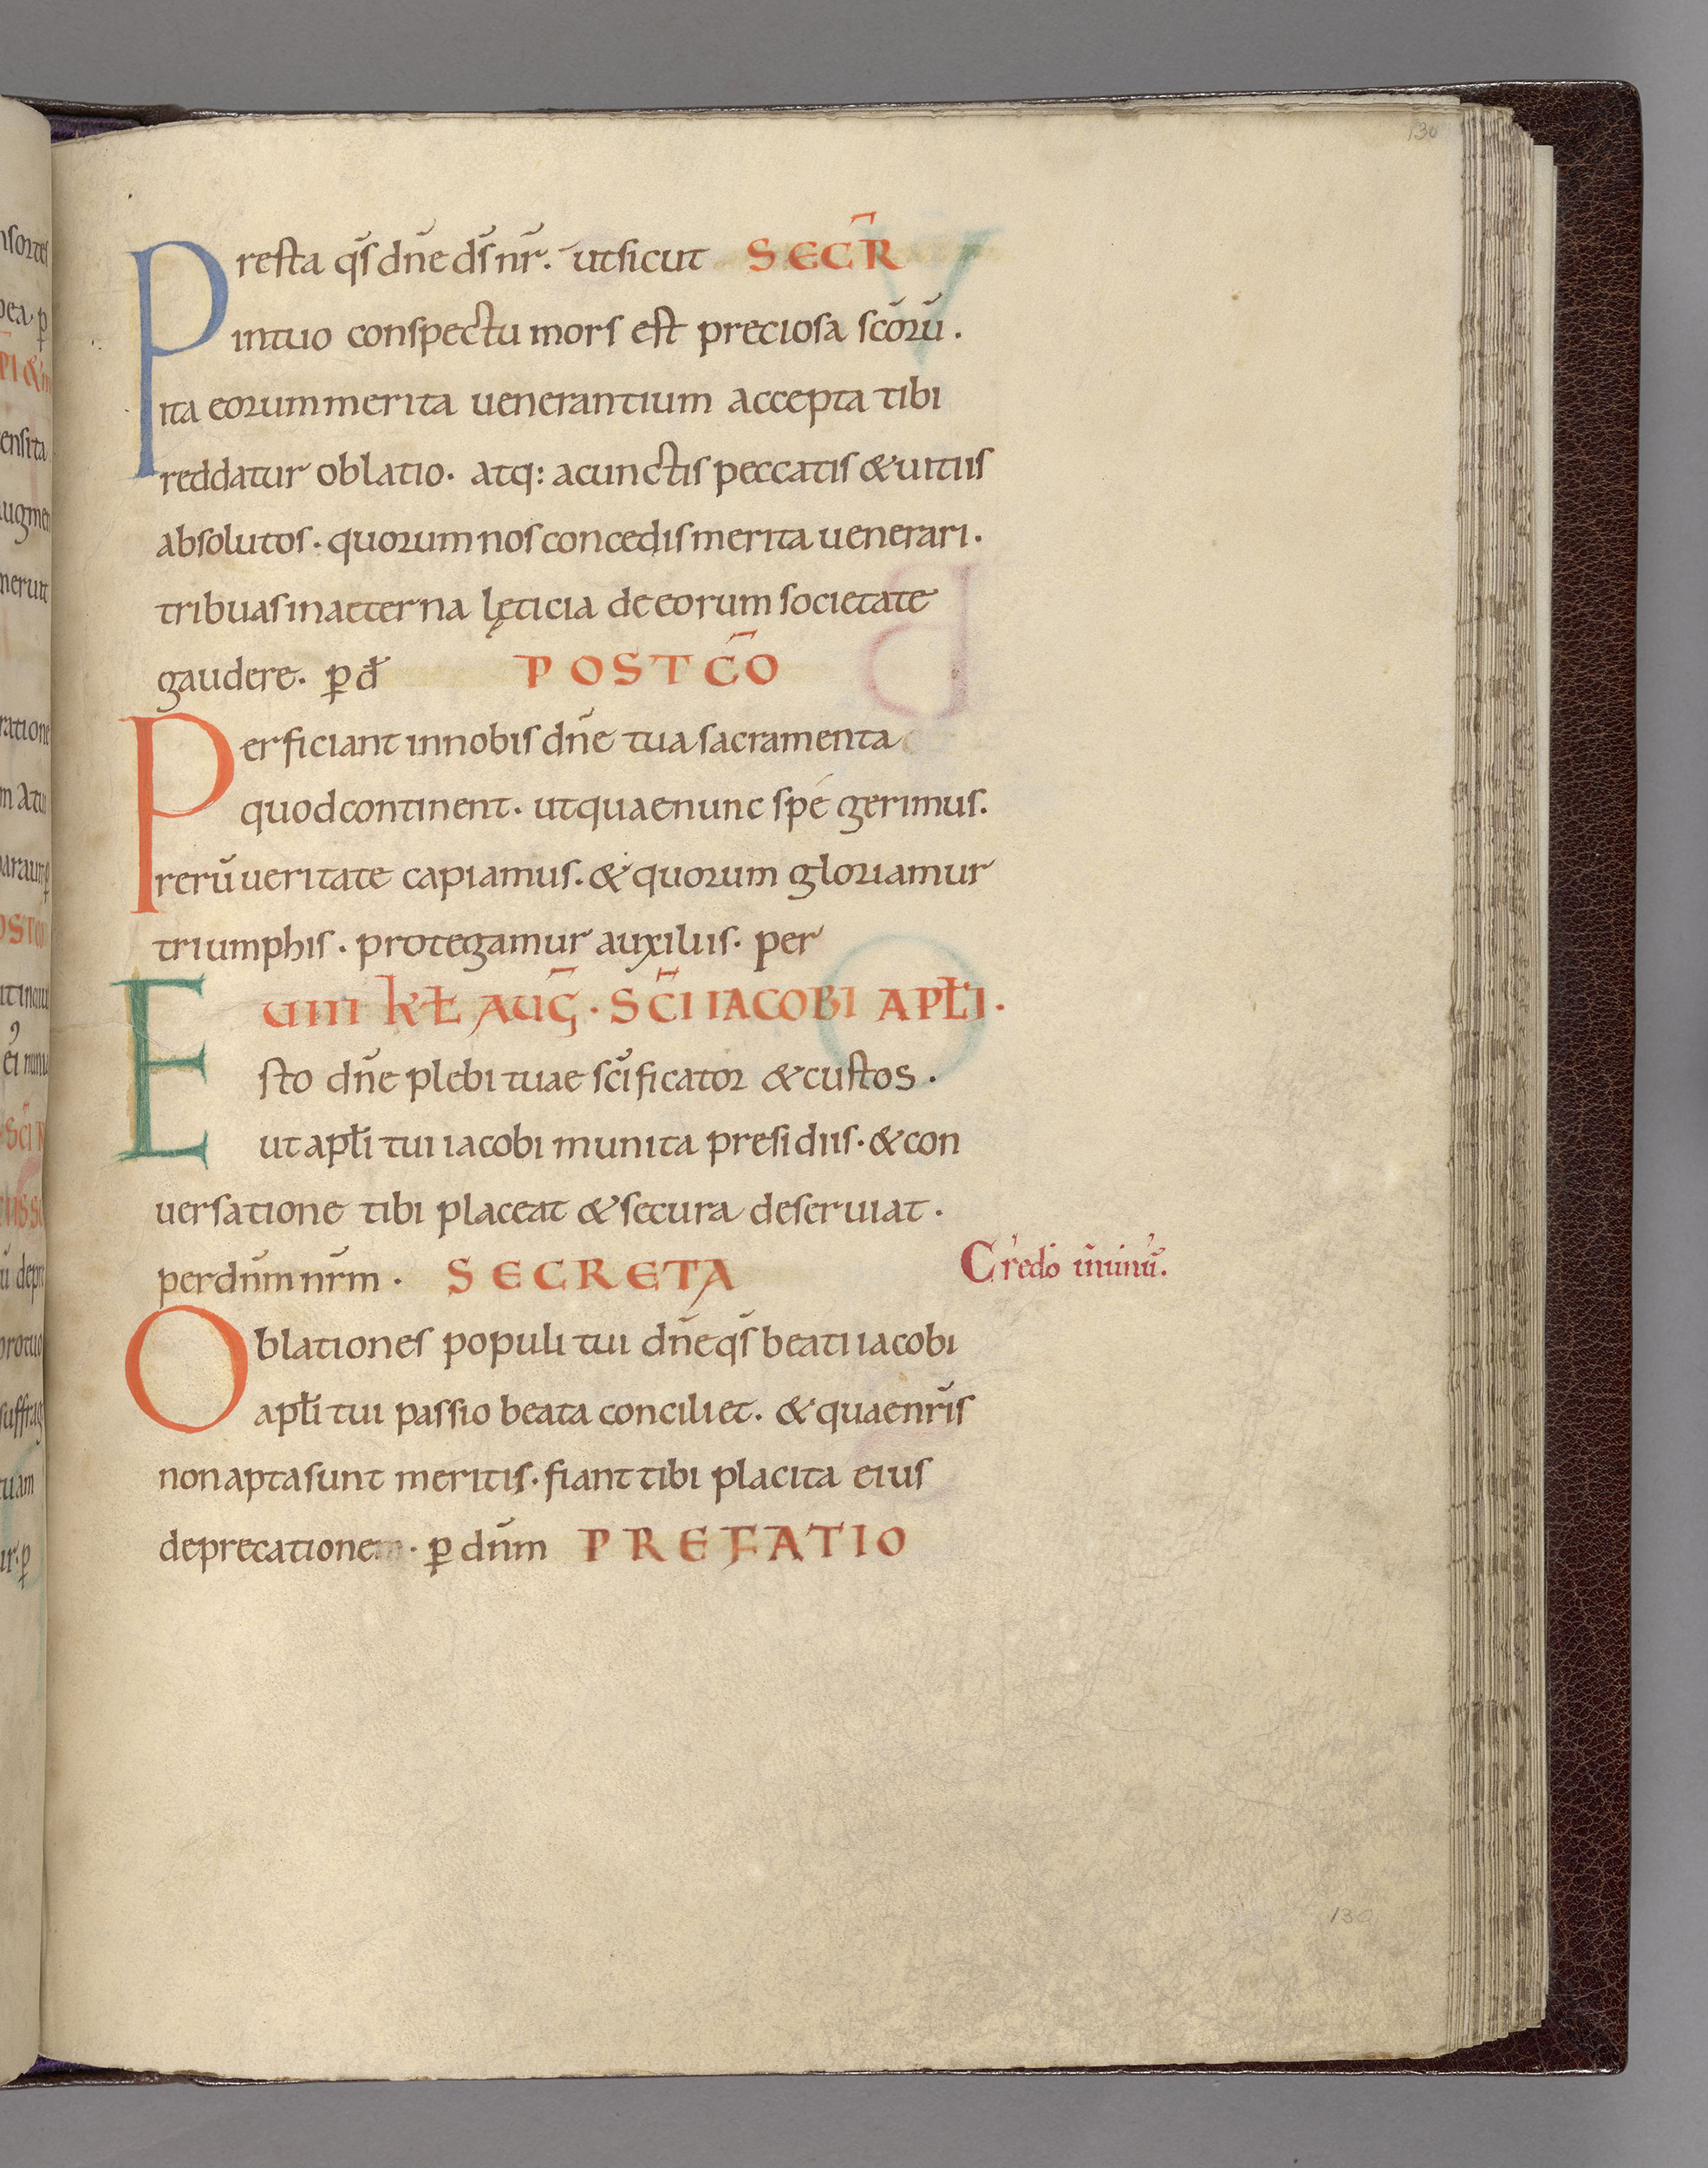 130
Presta qs̄ dn̄e ds̄ nr̄. ut sicut SECR̄
in tuo conspectu mors est preciosa sc̄orū.
ita eorum merita uenerantium accepta tibi
reddatur oblatio. atq: a cunctis peccatis & uitiis
absolutos. quorum nos concedis merita uenerari.
tribuas in aeterna lęticia de eorum societate
gaudere. ꝑ đ POSTCO̅
Perficiant in nobis dn̄e tua sacramenta
quod continent. ut quae nunc spe gerimus.
rerū ueritate capiamus. & quorum gloriamur
triumphis. protegamur auxiliis. per
UIII Kƚ AUG̅. SC̅I IACOBI APƚI.
Esto dn̄e plebi tuae sc̄ificator & custos.
ut apƚi tui iacobi munita presidiis. & con
uersatione tibi placeat & secura deseruiat.
per dn̄m nr̄m. SECRETA
Credo in unū.
Oblationes populi tui dn̄e qs̄ beati iacobi
apƚi tui passio beata conciliet. & quae nr̄is
non apta sunt meritis. fiant tibi placita eius
deprecatione. ꝑ dn̄m PREFATIO
130